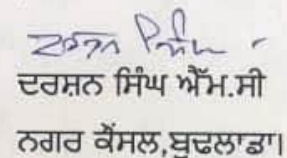 ਦਰਸ਼ਨ ਸਿੰਘ ਐੱਮ.ਸੀ
ਨਗਰ ਕੌਂਸਲ,ਬੁਢਲਾਡਾ।